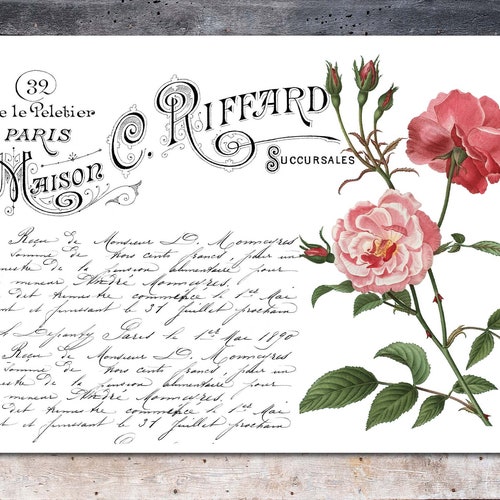 32
e le Peletier
PARIS
Maison C. RIFFARD
SUCCURSALES
Reçu de Monsieur D. Monmeyres
Somme de trois cents francs, pour un
estre de la pension alimentaire pour
mineur Monmeyres.
dit trimestre commence le 1er Mai
et finissant le 31 juillet prochain
Paris le 1er Mai 1890
Reçu de Monsieur D. Monmeyres
Somme de trois cents francs, pour un
estre de la pension alimentaire pour
mineur Monmeyres.
dit trimestre commence le 1er Mai
et finissant le 31 juillet prochain